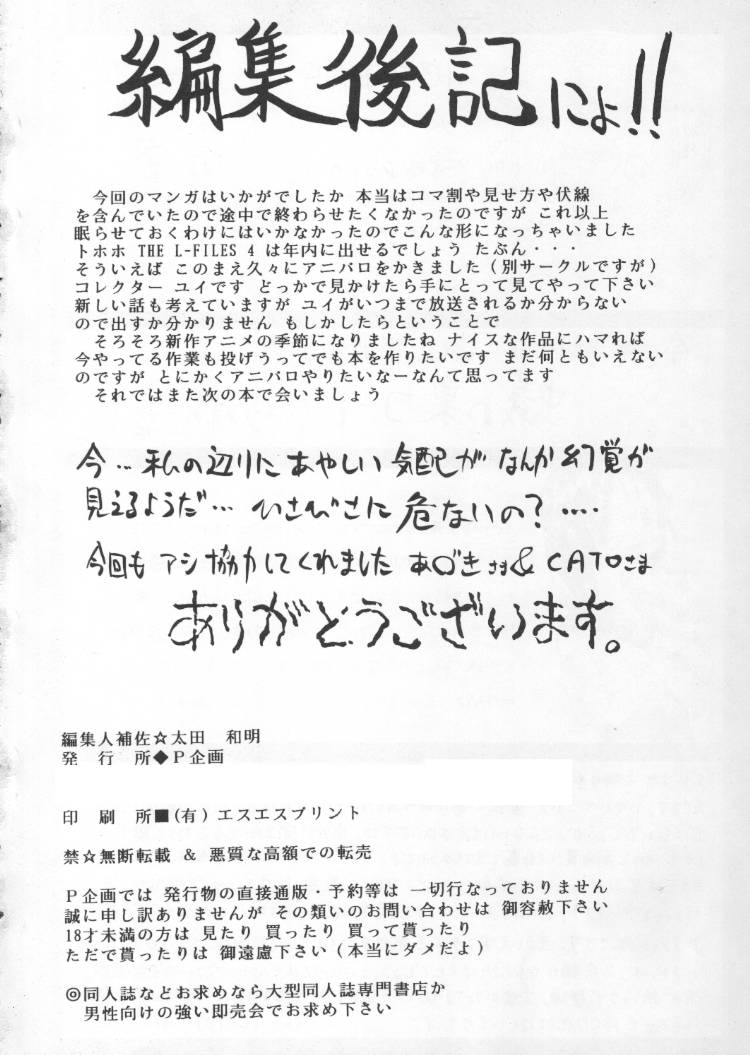 編集後記にょ!!
今回のマンガはいかがでしたか 本当はコマ割や見せ方や伏線
を含んでいたので途中で終わらせたくなかったのですが これ以上
眠らせておくわけにはいかなかったのでこんな形になっちゃいました
トホホ THE L-FILES 4 は年内に出せるでしょう たぶん・・・
そういえば このまえ久々にアニパロをかきました(別サークルですが)
コレクター ユイです どっかで見かけたら手にとって見てやって下さい
新しい話も考えていますが ユイがいつまで放送されるか分からない
ので出すか分かりません もしかしたらということで
そろそろ新作アニメの季節になりましたね ナイスな作品にハマれば
今やってる作業も投げうってでも本を作りたいです まだ何ともいえない
のですが とにかくアニパロやりたいなーなんて思ってます
それではまた次の本で会いましょう
今… 私の辺りにあやしい気配が なんか幻覚が
見えるようだ… ひさびさに 危ないの?‥‥
今回も アシ協力してくれました あづきさま& CATOさま
ありがとうございます。
編集人補佐☆太田 和明
発 行 所◆P企画
印 刷 所■(有)エスエスプリント
禁☆無断転載 & 悪質な高額での転売
P企画では 発行物の直接通販・予約等は 一切行なっておりません
誠に申し訳ありませんが その類いのお問い合わせは 御容赦下さい
18才未満の方は 見たり 買ったり 買って貰ったり
ただで貰ったりは 御遠慮下さい(本当にダメだよ)
◎同人誌などお求めなら大型同人誌専門書店か
男性向けの強い即売会でお求め下さい